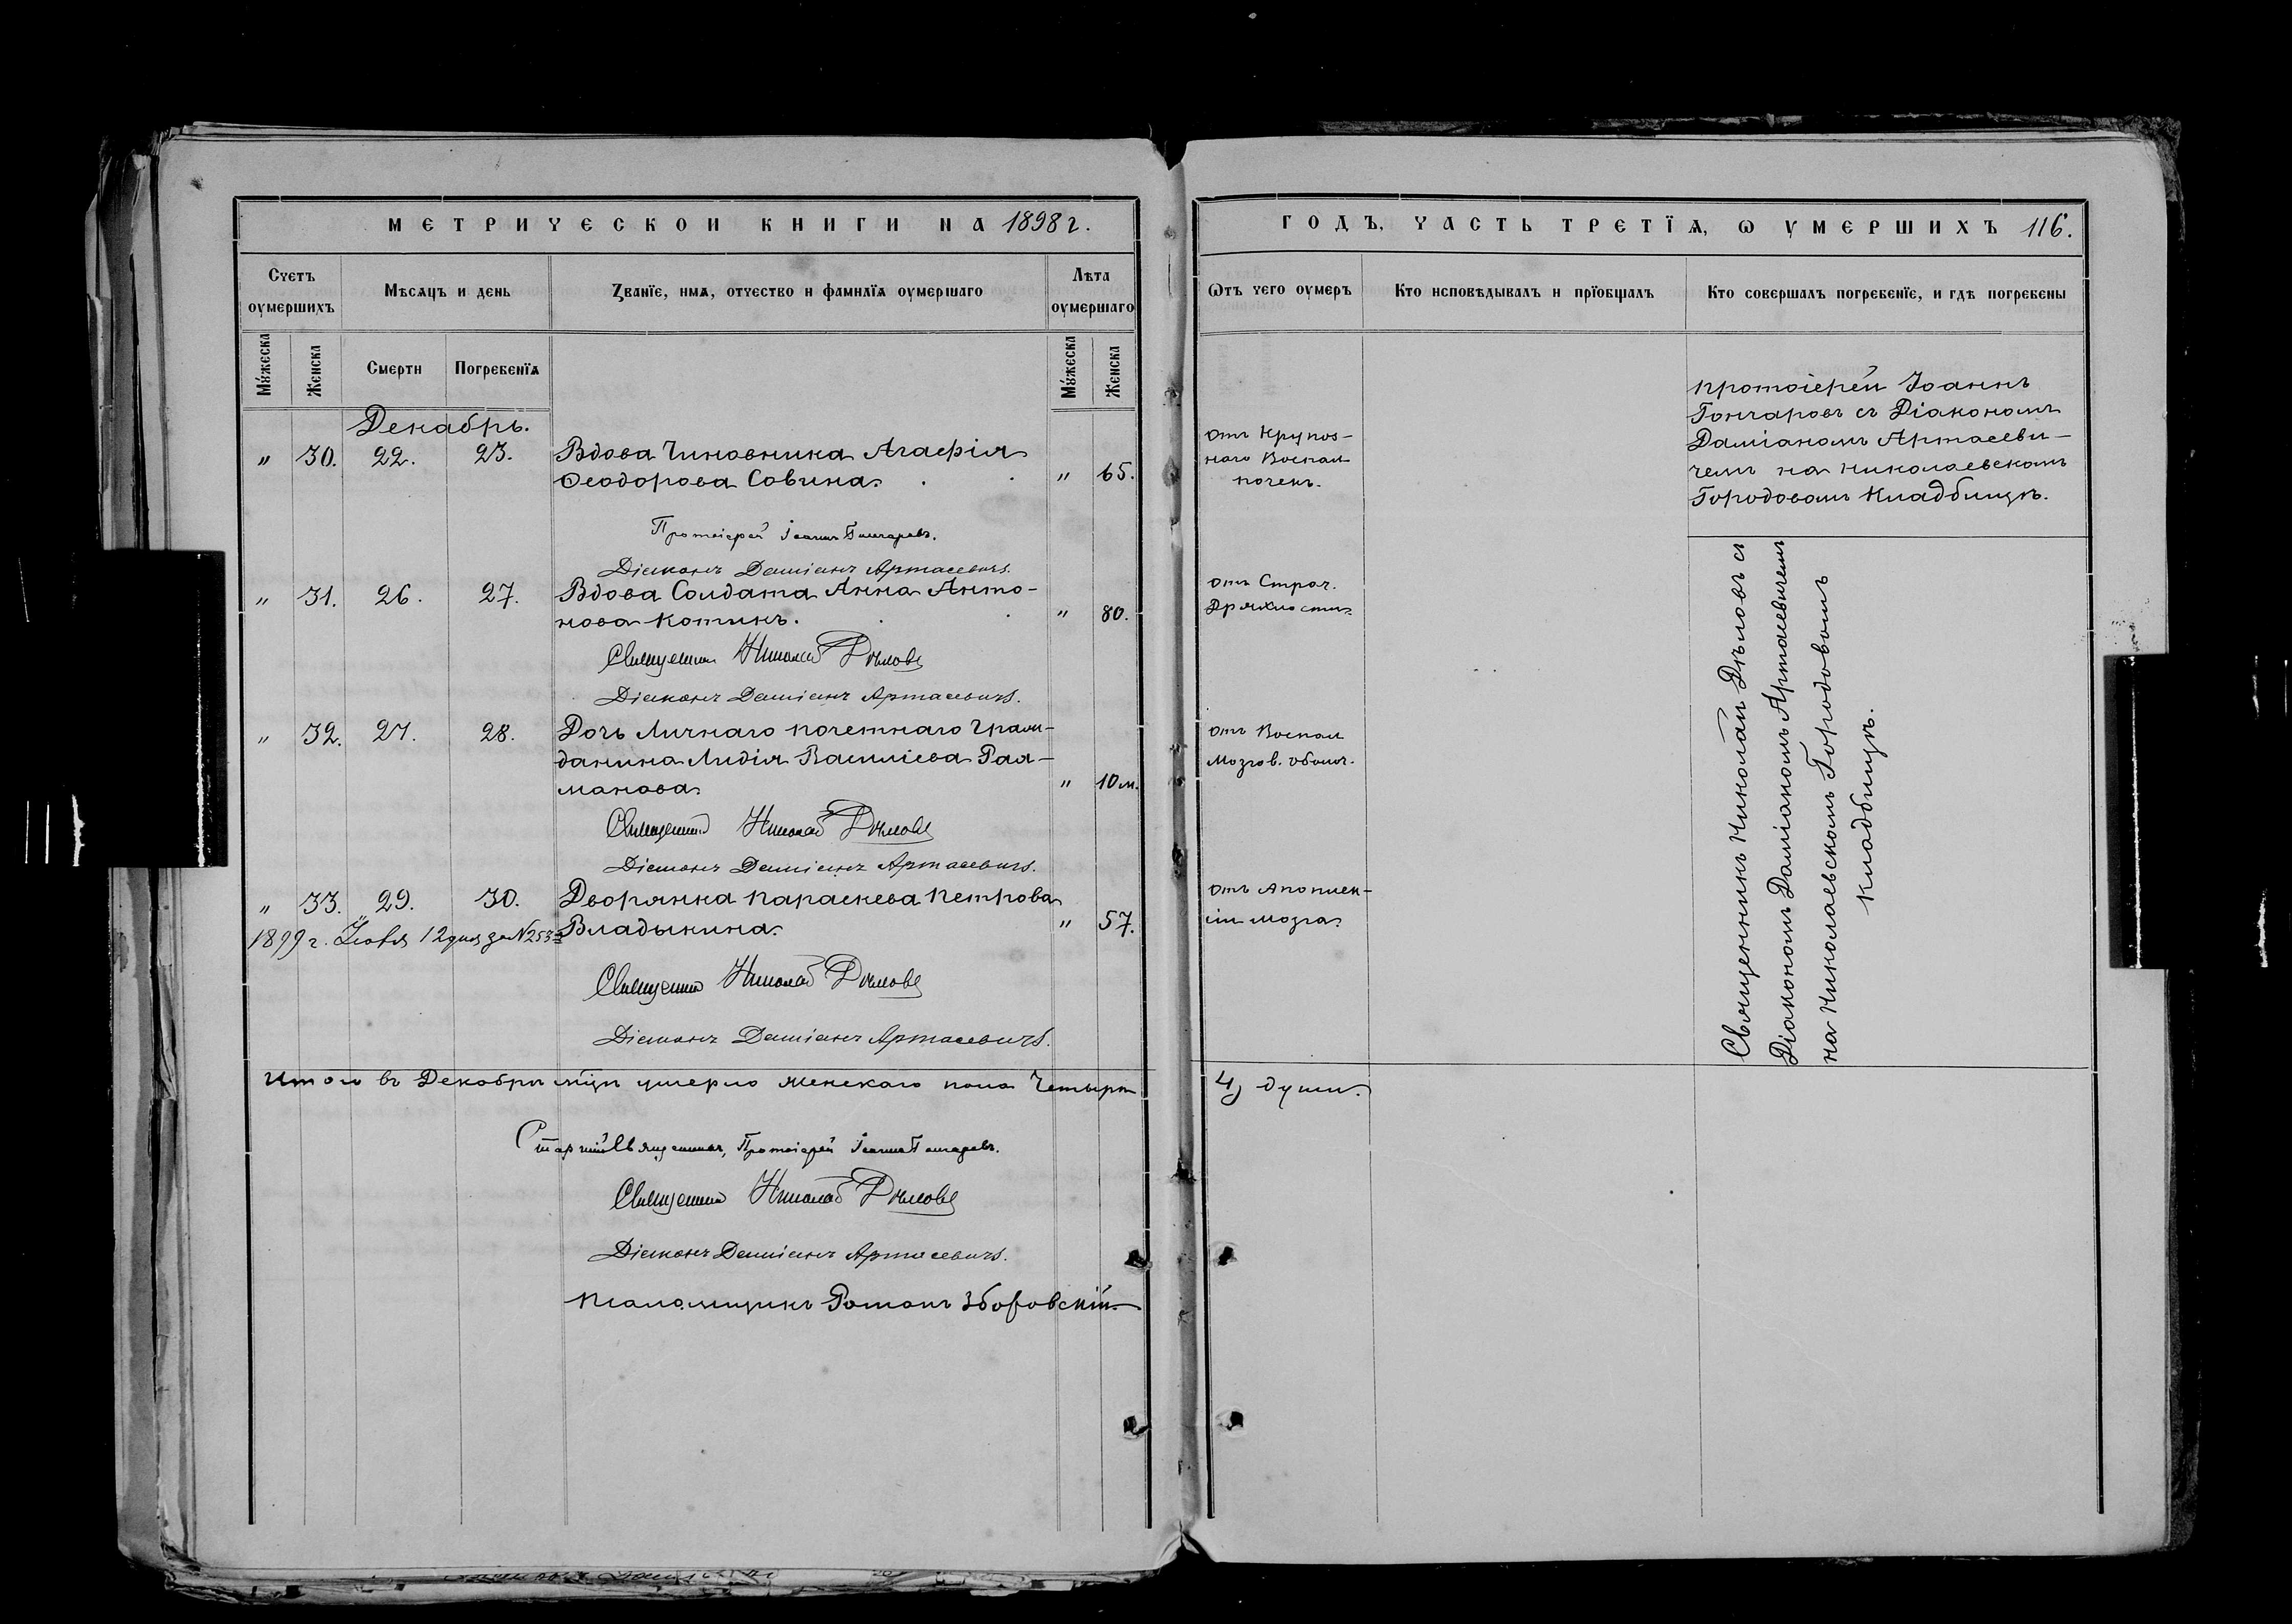 МЕТРИЧЕСКОЙ КНИГИ НА 1898 г.
Счетъ оумершихъ
Мѣсяцъ и день
Званїе, имя, отчество и фамилїя оумершаго
Лѣта оумершаго
Мужеска
Женска
Смерти
Погребенїя
Мужеска
Женска
Декабрь.
" 30. 22. 23. Вдова Чиновника Агафія
Ѳеодорова Совина. " 65.
Протоіерей Іоаннъ Гончаровъ.
Діаконъ Даміанъ Артасевичъ.
" 31. 26. 27. Вдова Солдата Анна Анто-
нова Котикъ. " 80.
Священникъ Николай Дѣловъ
Діаконъ Даміанъ Артасевичъ.
" 32. 27. 28. Дочь Личнаго почетнаго Граж-
данина Лидія Василіева
манова. " 10 м.
Священникъ Николай Дѣловъ
Діаконъ Даміанъ Артасевичъ.
" 33. 29. 30. Дворянка Параскева Петрова
1899 г. 12 дня за № 253 Владыкина. " 57.
Священникъ Николай Дѣловъ
Діаконъ Даміанъ Артасевичъ.
Итого въ Декабрѣ мцѣ умерло женскаго пола Четыре
Старшій Священникъ, Протоіерей Іоаннъ Гончаровъ.
Священникъ Николай Дѣловъ
Діаконъ Даміанъ Артасевичъ.
Псаломщикъ Романъ Зборовскій
ГОДЪ, ЧАСТЬ ТРЕТЇЯ, Ѡ УМЕРШИХЪ 116.
Ѿтъ чего оумеръ
Кто исповѣдывалъ и прїобщалъ
Кто совершалъ погребенїе, и гдѣ погребены
отъ Крупоз-
наго Воспал
почекъ.
Протоіерей Іоаннъ
Гончаровъ съ Діакономъ
Даміаномъ Артасеви-
чемъ на Николаевскомъ
Городовомъ Кладбищѣ.
отъ Стар.
Дряхлости.
отъ Воспал
Мозгов. оболоч.
отъ Апоплек-
сіи мозга.
Священникъ Николай Дѣловъ съ
Діакономъ Даміаномъ Артасевичемъ
на Николаевскомъ Городовомъ
Кладбищѣ.
4) души.